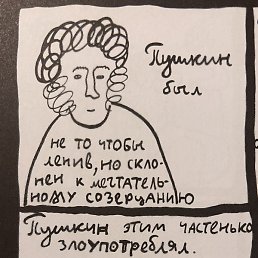 Пушкин
был
не то чтобы
ленив, но скло-
нен к мечтатель-
ному созерцанию
Пушкин этим частенько
злоупотреблял.